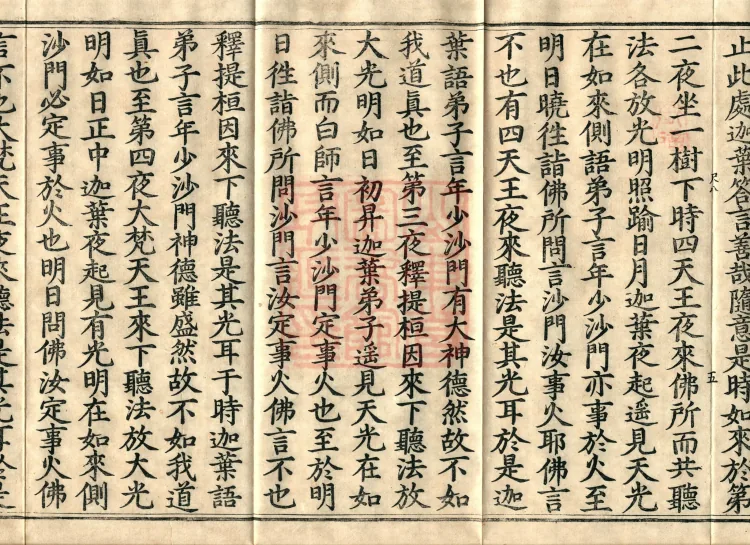 止此處迦葉答言善哉隨意是時如來於第
二夜坐一樹下時四天王夜來佛所而共聽
法各放光明照踰日月迦葉夜起遥見天光
在如來側語弟子言年少沙門亦事於火至
明日曉徃詣佛所問言沙門汝事火耶佛言
不也有四天王夜來聽法是其光耳於是迦
葉語弟子言年少沙門有大神德然故不如
我道真也至第三夜釋提桓因來下聽法放
大光明如日初昇迦葉弟子遥見天光在如
來側而白師言年少沙門定事火也至於明
日徃詣佛所問沙門言汝定事火佛言不也
釋提桓因來下聽法是其光耳于時迦葉語
弟子言年少沙門神德雖盛然故不如我道
真也至第四夜大梵天王來下聽法放大光
明如日正中迦葉夜起見有光明在如來側
沙門必定事於火也明日問佛汝定事火佛
言不也大梵天王夜來聽法是其光耳於是
尺八
五